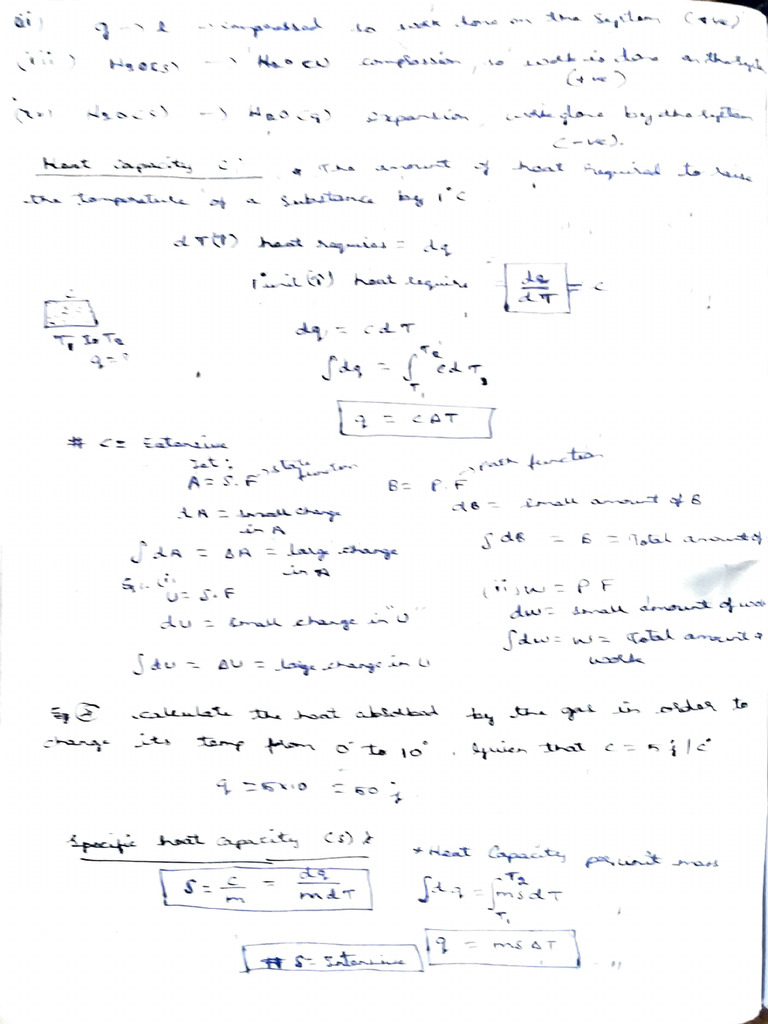 ii) g → l → compressed so work done on the system (+ve)
(iii) H2O(s) → H2O(l) compression, so work is done on the system (+ve)
(iv) H2O(s) → H2O(g) expansion, work done by the system (-ve).
Heat capacity C: * The amount of heat required to raise
the temperature of a substance by 1°C
dT(1°) heat requires = dq
1 unit (1°) heat require = dq/dT = C
T1 to T2
q = ?
dq = cdT
∫dq = ∫T1 T2 cdT
q = CΔT
# C = Extensive
Let:
A = S.F → state function
B = P.F → path function
dA = small change in A
dB = small amount of B
∫dA = ΔA = large change in A
∫dB = B = Total amount of
Eg:- (i) U = S.F
(ii) W = P F
dU = small change in "U"
dw = small amount of work
∫dU = ΔU = large change in U
∫dw = W = Total amount of work
Eg calculate the heat absorbed by the gas in order to
change its temp from 0° to 10°. Given that C = 5 j/c°
q = 5×10 = 50 j
Specific heat capacity (S) :
* Heat Capacity per unit mass
S = c/m = dq/mdT
∫dq = ∫T1 T2 msdT
q = msΔT
# S = Intensive